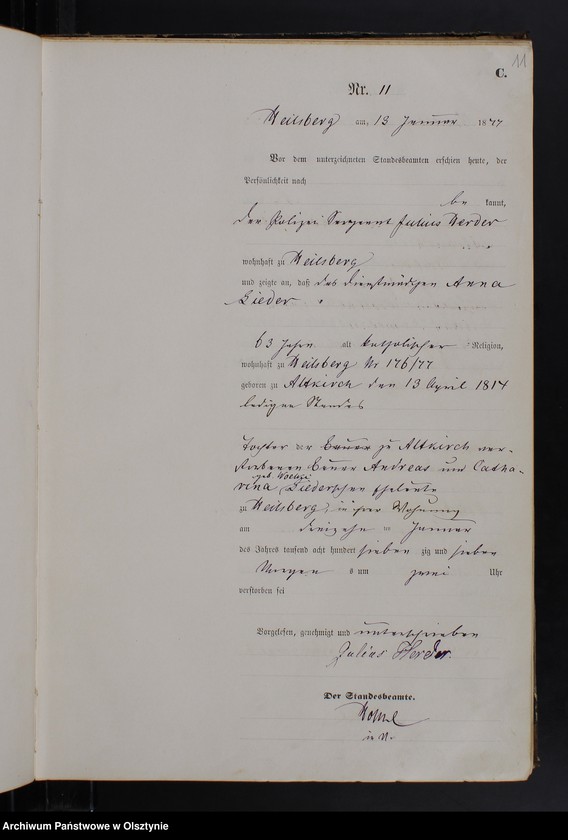 11
C.
Nr. 11
Heilsberg am 13 Januar 1877
Vor dem unterzeichneten Standesbeamten erschien heute, der
Persönlichkeit nach
be kannt,
der Polizei Sergeant Julius Herder
wohnhaft zu Heilsberg
und zeigte an, daß das Dienstmädchen Anna
Lieder
63 Jahre alt katholischer Religion,
wohnhaft zu Heilsberg Nr 176/77
geboren zu Altkirch den 13 April 1814
ledigen Standes
Tochter der Bauer zu Altkirch ver-
storbenen Bauer Andreas und Catha-
geb.
rina Liederschen Eheleute
zu Heilsberg, in ihrer Wohnung
am dreizehn ten Januar
des Jahres tausend acht hundert sieben zig und sieben
Morgen s um zwei Uhr
verstorben sei
Vorgelesen, genehmigt und unterschrieben
Julius Herder.
Der Standesbeamte.
Archiwum Państwowe w Olsztynie